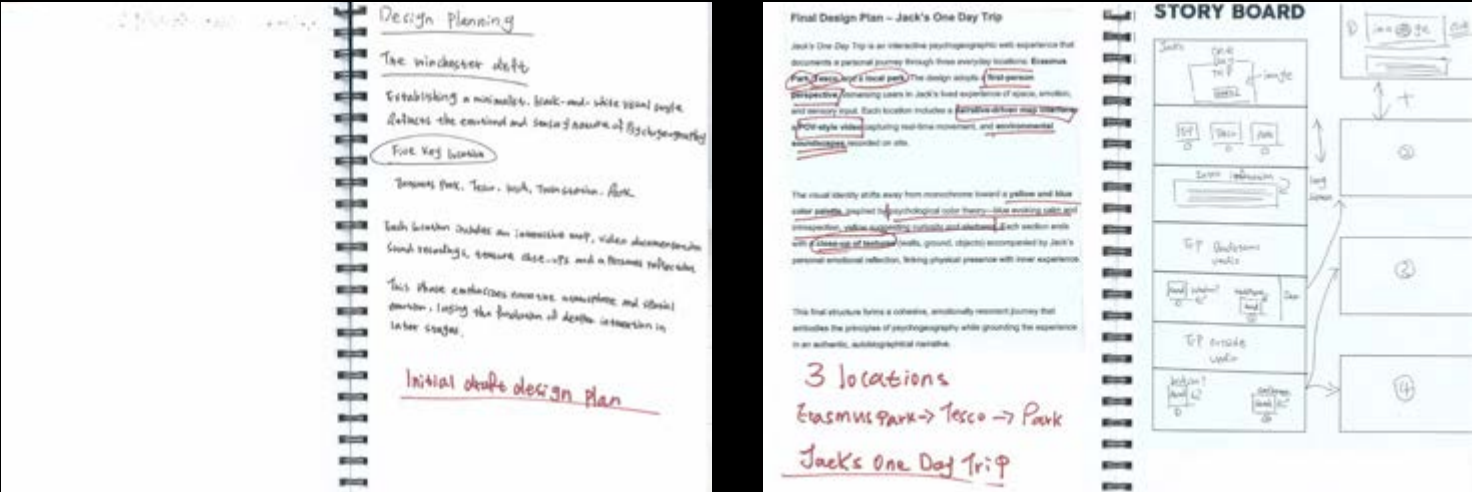 Design Planning
The Winchester draft
Establishing a minimalist, black-and-white visual style
Reflects the emotional and sensory nature of Psychogeography
Five key location
Erasmus Park, Tesco, Park
Each location includes an interactive map, video documentation
Sound recordings, texture close-ups and a Personal reflection
This Phase emphasizes emotive atmosphere and spatial
emotion, laying the foundation of deeper interaction in
later stages.
Initial draft design plan
Final Design Plan – Jack's One Day Trip
Jack's One Day Trip is an interactive psychogeographic web experience that
documents a personal journey through three everyday locations: Erasmus
Park, Tesco, and a local park. The design adopts a first-person
perspective, immersing users in Jack's lived experience of space, emotion,
and sensory input. Each location includes a narrative-driven map interface,
a POV-style video capturing real-time movement, and environmental
soundscapes recorded on site.
The visual identity shifts away from monochrome toward a yellow and blue
color palette, inspired by psychological color theory—blue evoking calm and
introspection, yellow suggesting curiosity and alertness. Each section ends
with a close-up of textures (walls, ground, objects) accompanied by Jack's
personal emotional reflection, linking physical presence with inner experience.
This final structure forms a cohesive, emotionally resonant journey that
embodies the principles of psychogeography while grounding the experience
in an authentic, autobiographical narrative.
3 locations
Erasmus Park -> Tesco -> Park
Jack's One Day Trip
STORY BOARD
Jack's
one
Day
Trip
image
EP
Tesco
Park
long
EP
EP outside
①
image
②
③
④